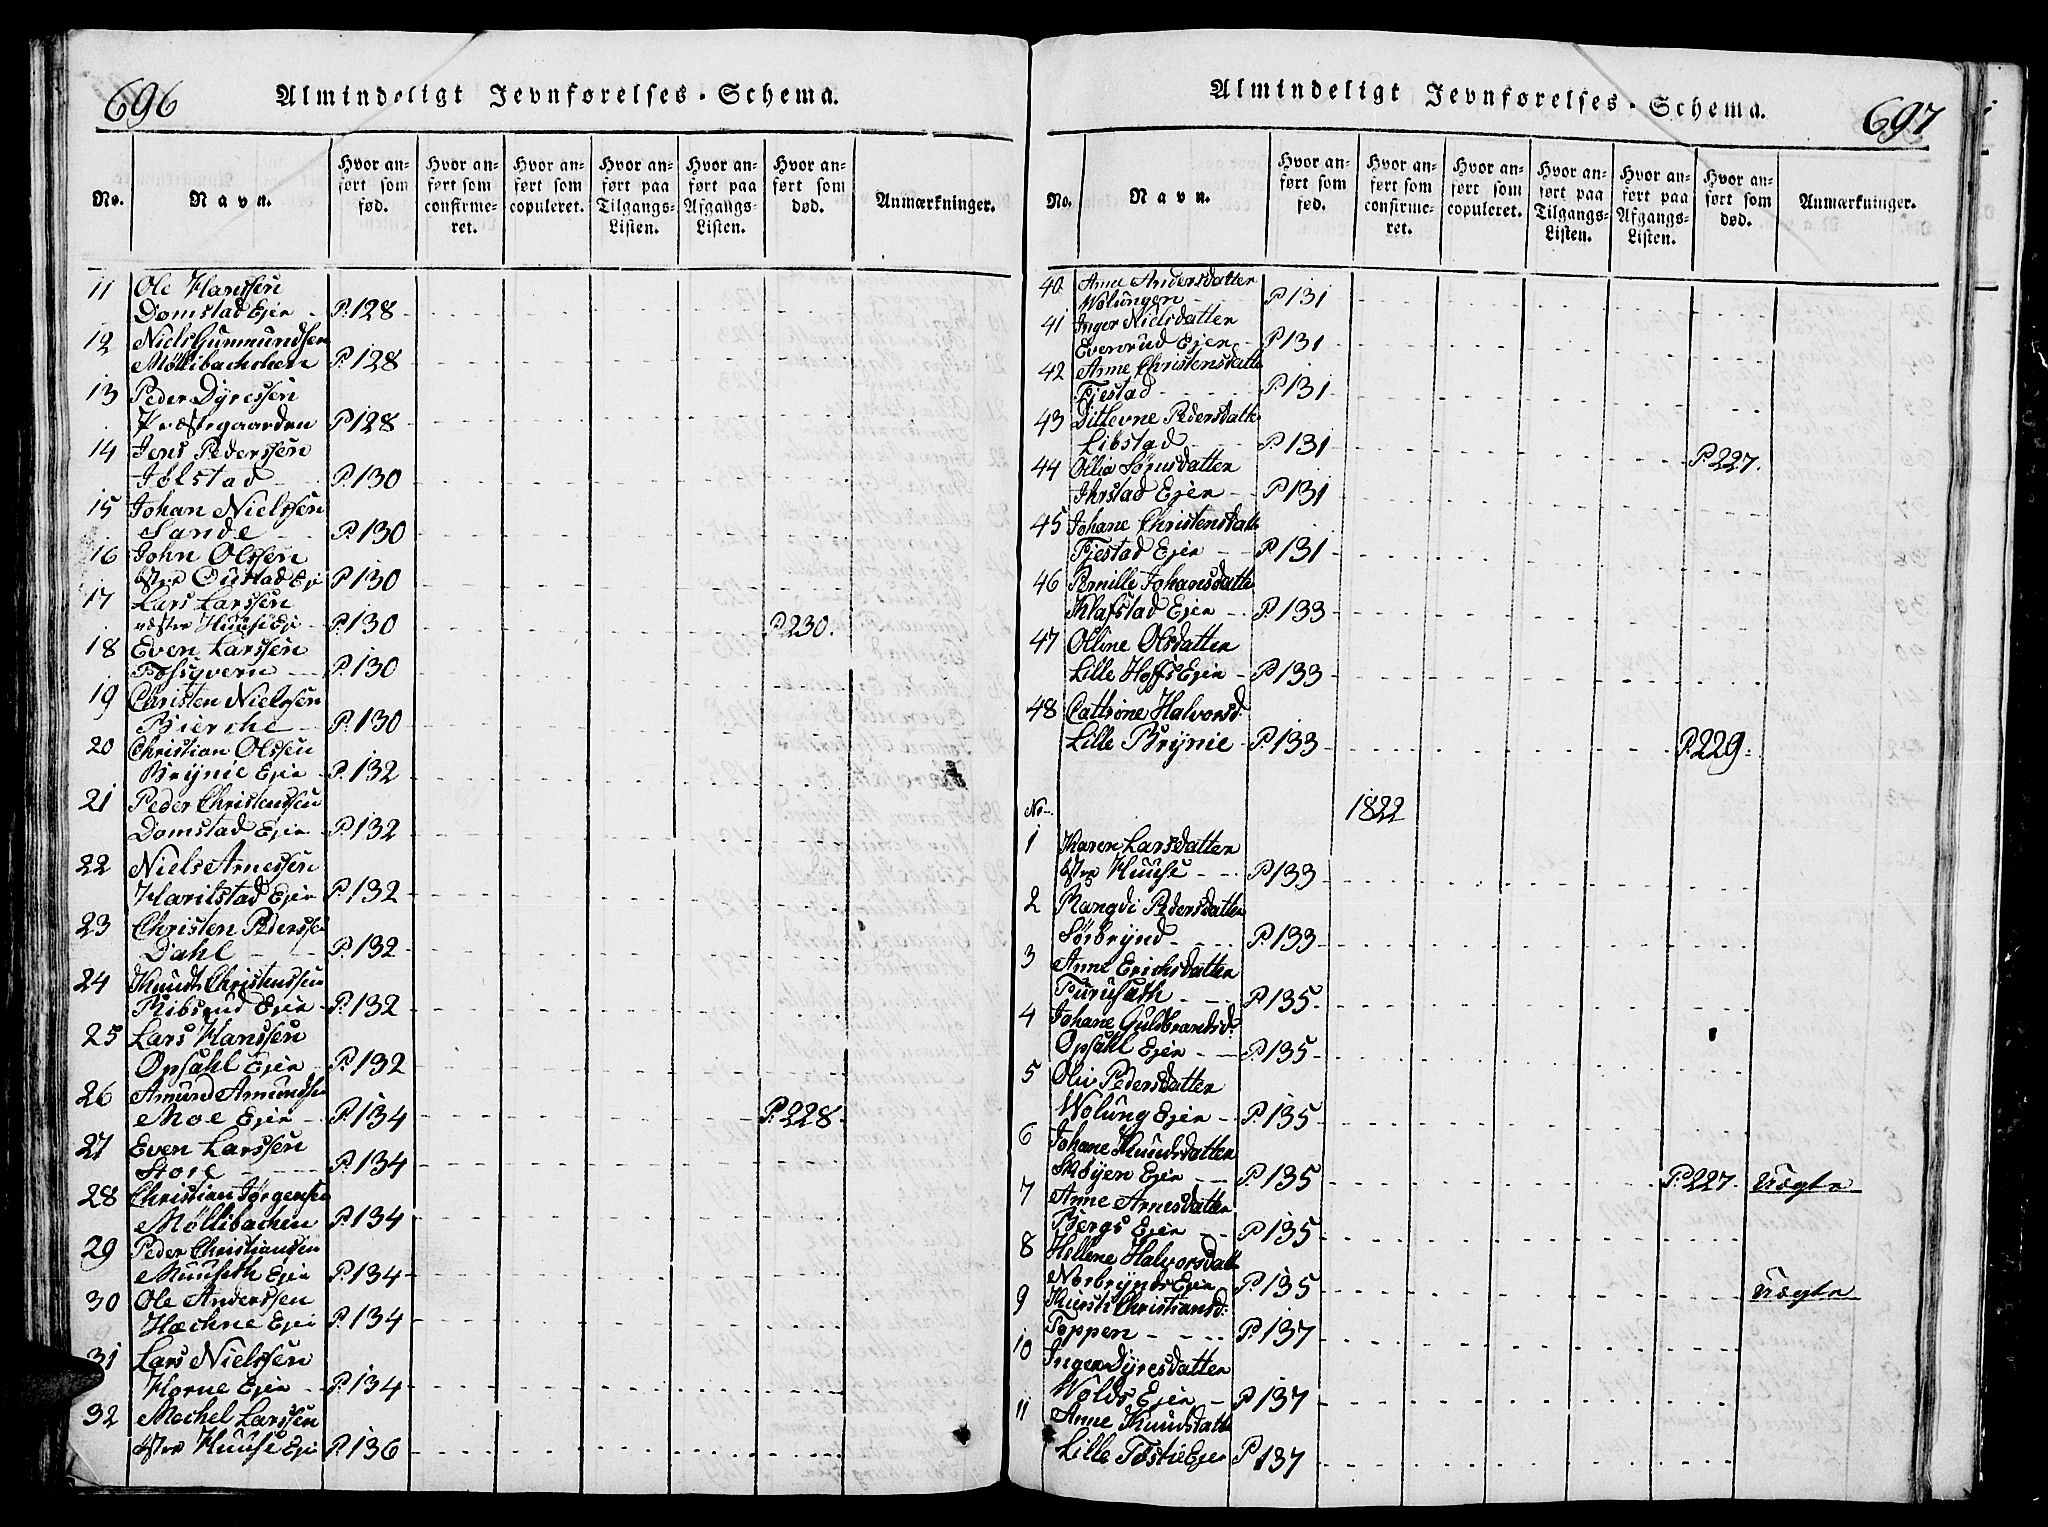 696
Almindeligt Jevnførelses-Schema.
No.
Navn.
Hvor anført som fød.
Hvor anført som confirmeret.
Hvor anført som copuleret.
Hvor anført paa Tilgangs-Listen.
Hvor anført paa Afgangs-Listen.
Hvor anført som død.
Anmærkninger.
11 Ole Hanssen
Domstad Ejer P.128
12 Niels Gummundsen
Møllibachchen P.128
13 Peder Dyressen
Præstegaarden P.128
14 Jens Pederssen
Jølstad P.130
15 Johan Nielssen
Sande P.130
16 John Olssen
østre Oustad Eje P.130
17 Lars Larssen
Huuse Eje P.130 P.230.
18 Even Larssen
P.130
19 Christen Nielssen
Bierche P.130
20 Christian Olssen
Brynie Ejer P.132
21 Peder Christenssen
Domstad Ejer P.132
22 Niels Arnessen
Harilstad Ejer P.132
23 Christen Pederssen
Dahl P.132
24 Knudt Christenssen
Ribsrud Ejer P.132
25 Lars Hanssen
Opsahl Ejer P.132
26 Amund Amundsen
Moe Ejer P.134 P.228.
27 Even Larssen
Store P.134
28 Christian Jørgensen
Møllibachen P.134
29 Peder Christiansen
Muuseth Ejer P.134
30 Ole Anderssen
Hachne Eje P.134
31 Lars Nielssen
Horne Ejer P.134
32 Mechel Larssen
østre Huuse Eje P.136
Almindeligt Jevnførelses-Schema.
697
No.
Navn.
Hvor anført som fød.
Hvor anført som confirmeret.
Hvor anført som copuleret.
Hvor anført paa Tilgangs-Listen.
Hvor anført paa Afgangs-Listen.
Hvor anført som død.
Anmærkninger.
40 Anne Andersdatter
Wolungen P.131
41 Inger Nielsdatter
Evenrud Ejer P.131
42 Anne Christensdatte
Fjestad P.131
43 Dithevne Pedersdatte
Libstad P.131 P.227.
44 Ollia Sørnsdatter
Ihrstad Ejer P.131
45 Johane Christensdatt
Fjestad Ejer P.131
46 Pernille Johansdatte
Klafstad Ejer P.133
47 Olline Olsdatter
Lille Hoffs Ejer P.133
48 Cattrine Halvorsd:
Lille Brynie P.133 P.229.
No. 1822
1 Karen Larsdatter
østre Huuse P.133
2 Rangdi Pedersdatter
Sørbrynd P.133
3 Anne Erichsdatter
Furuseth P.135
4 Johane Guldbrandsd:
Opsahl Ejer P.135
5 Oliv Pedersdatter
Wolung Ejer P.135
6 Johane Knudsdatter
Skøyen Ejer P.135 P.227.
7 Anne Arnesdatter
Bergs Ejer P.135
8 Hellene Halvorsdatt
Norbrynds Ejer P.135
9 Kiersti Christiansd:
Toppen P.137
10 Inger Dyresdatter
Wolds Ejer P.137
11 Anne Knudsdatte
Lille Ejer P.137